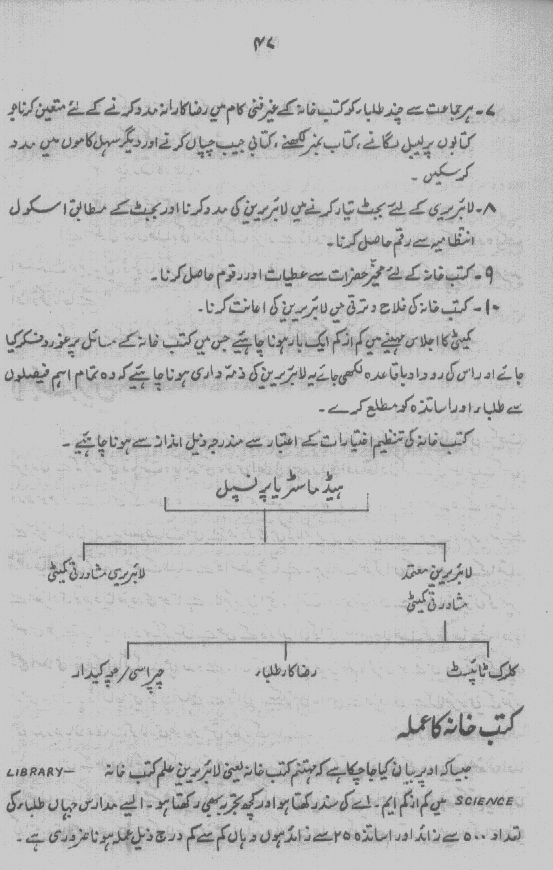 ۴۷
۷۔ ہر جماعت سے چند طلباء کو کتب خانہ کے غیر فنی کام میں رضاکارانہ مدد کرنے کے لئے متعین کرنا جو
کتابوں پر لیبل لگانے، کتاب نمبر لکھنے، کتابی جیب چپاں کرنے اور دیگر سہل کاموں میں مدد
کر سکیں ۔
۸۔ لائبریری کے لئے بجٹ تیار کرنے میں لائبریرین کی مدد کرنا اور بجٹ کے مطابق اسکول
انتظامیہ سے رقم حاصل کرنا۔
۹۔ کتب خانہ کے لئے مخیّر حضرات سے عطیات اور رقوم حاصل کرنا۔
۱۰۔ کتب خانہ کی فلاح و ترقی میں لائبریرین کی اعانت کرنا۔
کمیٹی کا اجلاس مہینے میں کم از کم ایک بار ہونا چاہئیے جس میں کتب خانہ کے مسائل پر غور و فکر کیا
جائے اور اس کی روداد باقاعدہ لکھی جائے یہ لائبریرین کی ذمہ داری ہونا چاہئیے کہ وہ تمام اہم فیصلوں
سے طلباء اور اساتذہ کو مطلع کرے ۔
کتب خانہ کی تنظیم اختیارات کے اعتبار سے مندرجہ ذیل انداز سے ہونا چاہئیے ۔
ہیڈ ماسٹر یا پرنسپل
لائبریرین معتمد لائبریری مشاورتی کمیٹی
مشاورتی کمیٹی
کلرک ٹائپسٹ رضاکار طلباء چپراسی/چوکیدار
کتب خانہ کا عملہ
جیسا کہ اوپر بیان کیا جا چکا ہے کہ مہتمم کتب خانہ یعنی لائبریرین علم کتب خانہ LIBRARY—
SCIENCE میں کم از کم ایم ۔ اے کی سند رکھتا ہو اور کچھ تجربہ بھی رکھتا ہو ۔ ایسے مدارس جہاں طلباء کی
تعداد ۵۰۰ سے زائد اور اساتذہ ۲۵ سے زائد ہوں وہاں کم سے کم درج ذیل عملہ ہونا ضروری ہے ۔